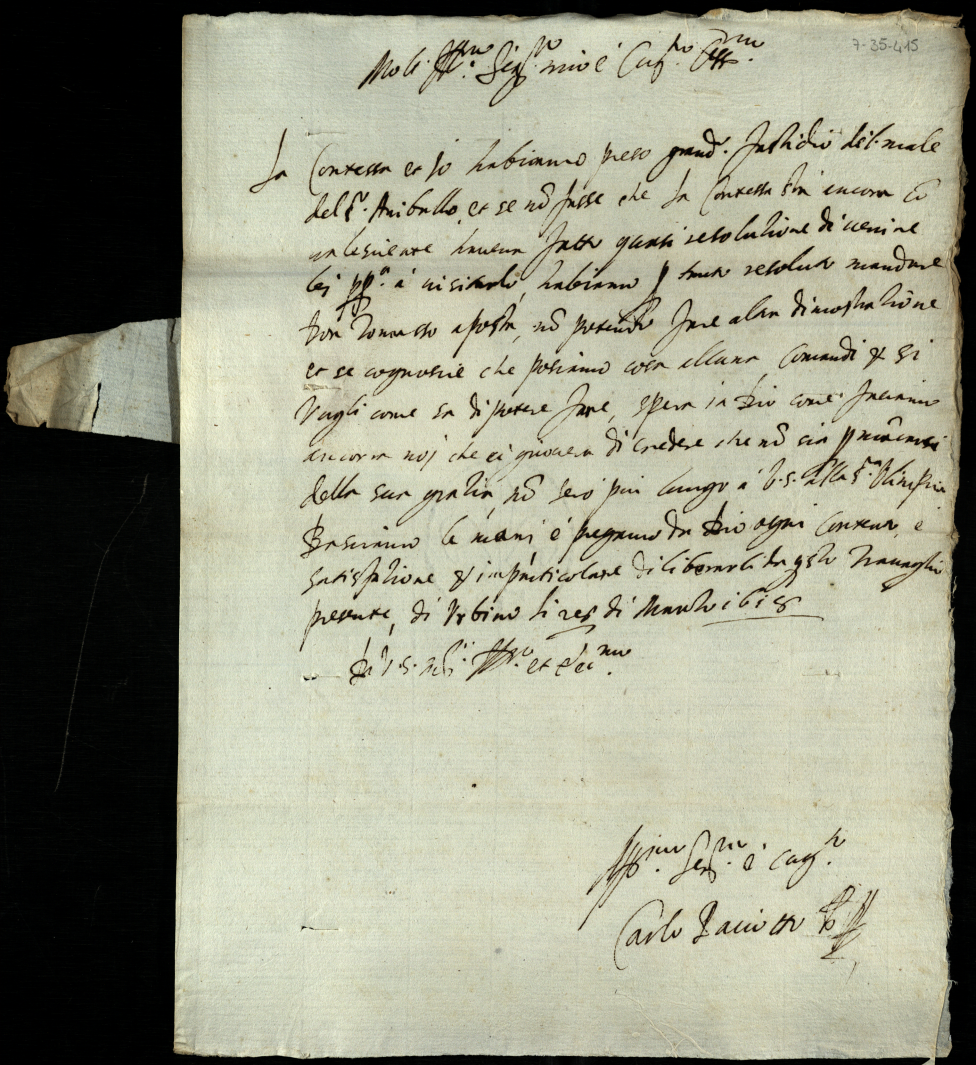 7-35-415
Molt. Ill.re Sig.r mio e Cug.no Oss.mo
La Contessa et Jo habbiamo preso grand. fastidio del male
del S.r Anibballo, et se nō fusse che la Contessa sta ancora cō
ualesciente haueua fatto quasi resolutione di uenire
lei pp.a a uisitarlo, habbiamo p tanto resoluto mandare
Don Tomasso aposta, nō potendo fare altra dimostratiōne
et se cognoscie che posiamo cosa alcuna Comandi et si
Vagli come sa di potere fare, spera in Dio come faciamo
ancorra noi che ci giouera di credere che nō sia p
della sua gratia, nō sero piu lungo a V.S. alla S.ra Olimpia
Basciamo le mani e pregamo da Dio ogni Contento, e
satisfatione et imparticolare di liberarli da qsto trauaglio
presente, di Vrbino li 28 di Marzo 1618
Di V.S. mol. Ill.re et
Aff.mo Ser.re e Cug.no
Carlo Paciotto